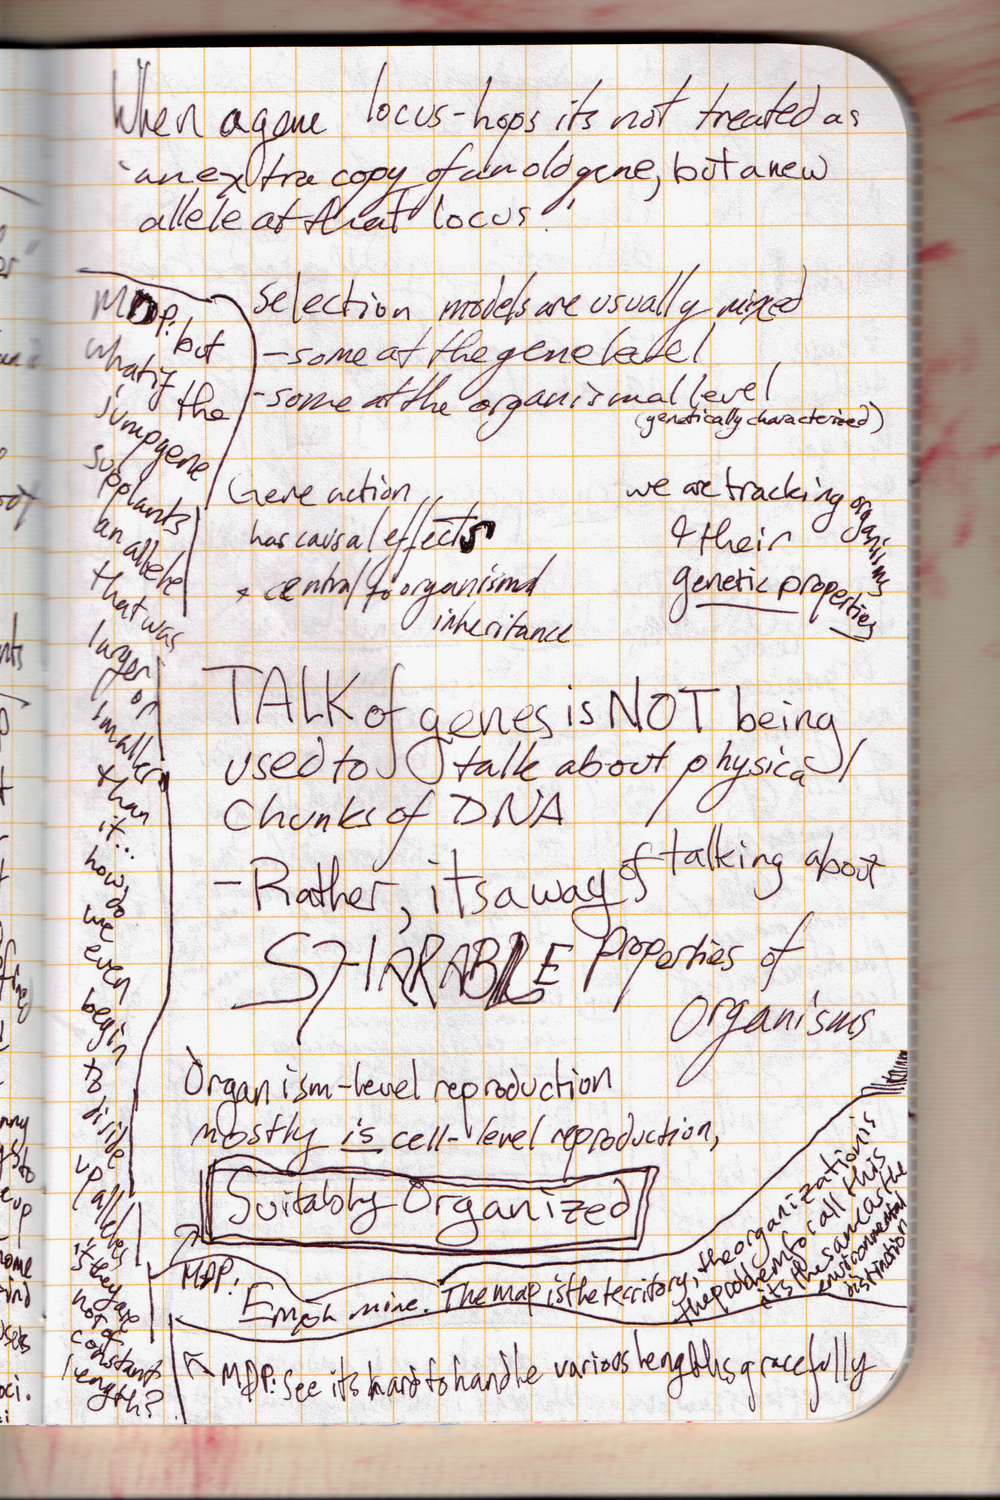 When a gene locus-hops its not treated as
an extra copy of an old gene, but a new
allele at that locus!
Selection models are usually mixed
-some at the gene level
-some at the organismal level
(genetically characterized)
Gene action
has causal effects
+ central to organismal
inheritance
we are tracking organisms
& their
genetic properties
TALK of genes is NOT being
used to talk about physical
Chunks of DNA
-Rather, its a way of talking about
SHARABLE properties of
organisms
Organism-level reproduction
mostly is cell-level reproduction,
Suitably Organized
MDP:
Emph mine. The map is the territory, the organization is
the problem for all this
its the same as the
environmental
distinction
MDP: See its hard to handle various lengths gracefully
MDP: but
what if
the
jump gene
supplants
an allele
that was
larger
or
smaller
than
it...
how
do
we
even
begin
to
divide
up alleles
if they are
not of
constant
length?